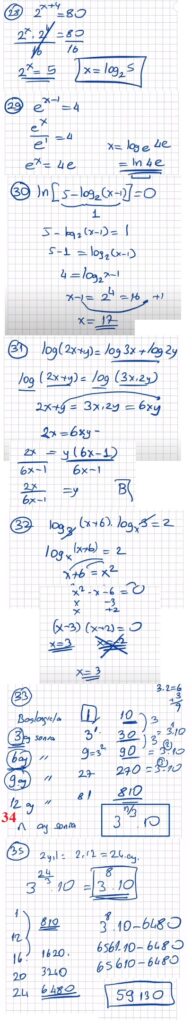 28 2^(x+4) = 80
2^x . 2^4 / 16 = 80 / 16
2^x = 5 x = log₂5
29 e^(x-1) = 4
e^x / e^1 = 4
x = logₑ4e
e^x = 4e = ln4e
30 ln[5-log₂(x-1)] = 0
1
5 - log₂(x-1) = 1
5 - 1 = log₂(x-1)
4 = log₂x-1
x-1 = 2^4 = 16 +1
x = 17
31 log(2x+y) = log3x + log2y
log(2x+y) = log(3x.2y)
2x+y = 3x.2y = 6xy
2x = 6xy -
2x / 6x-1 = y(6x-1) / 6x-1
2x / 6x-1 = y B
32 log₃(x+6) . logₓ3 = 2
logₓ(x+6) = 2
x+6 = x²
x² - x - 6 = 0
x -3
x +2
(x-3)(x+2) = 0
x=3 x=-2
x = 3
33 3.2=6
Başlangıçta 1 10
3 ay sonra 3¹ 30 = 3.10
6 ay " 9=3² 90 = 3².10
9 ay " 27 270 = 3³.10
12 ay " 81 810
34 n ay sonra 3^(n/3) . 10
35 2 yıl = 2.12 = 24 ay.
3^(24/3) . 10 = 3^8 . 10
1 810 3^8.10-6480
12
16 1620. 6561.10-6480
20 3240 65610-6480
24 6480 59130